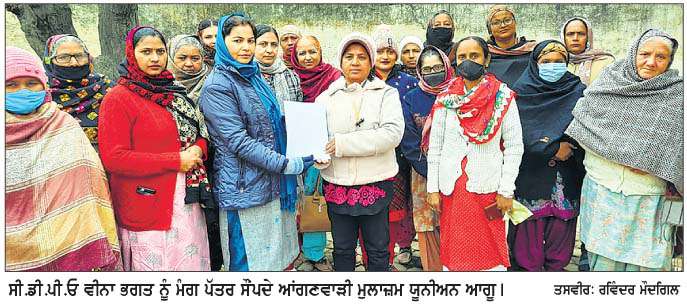 ਸੀ.ਡੀ.ਪੀ.ਓ ਵੀਨਾ ਭਗਤ ਨੂੰ ਮੰਗ ਪੱਤਰ ਸੌਂਪਦੇ ਆਂਗਣਵਾੜੀ ਮੁਲਾਜ਼ਮ ਯੂਨੀਅਨ ਆਗੂ। ਤਸਵੀਰ: ਰਵਿੰਦਰ ਮੰਦਗਿਲ